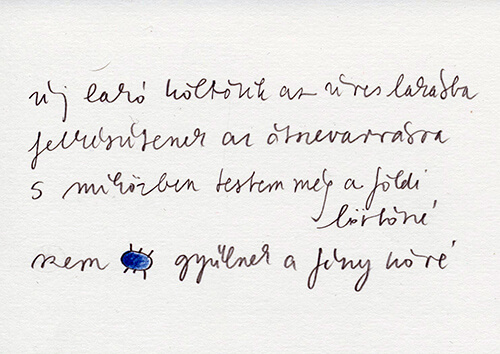 új lakó költözik az üres lakásba
felkészítenek az összevarrásra
s miközben testem még a földi
börtöné
szem gyűlnek a fény köré